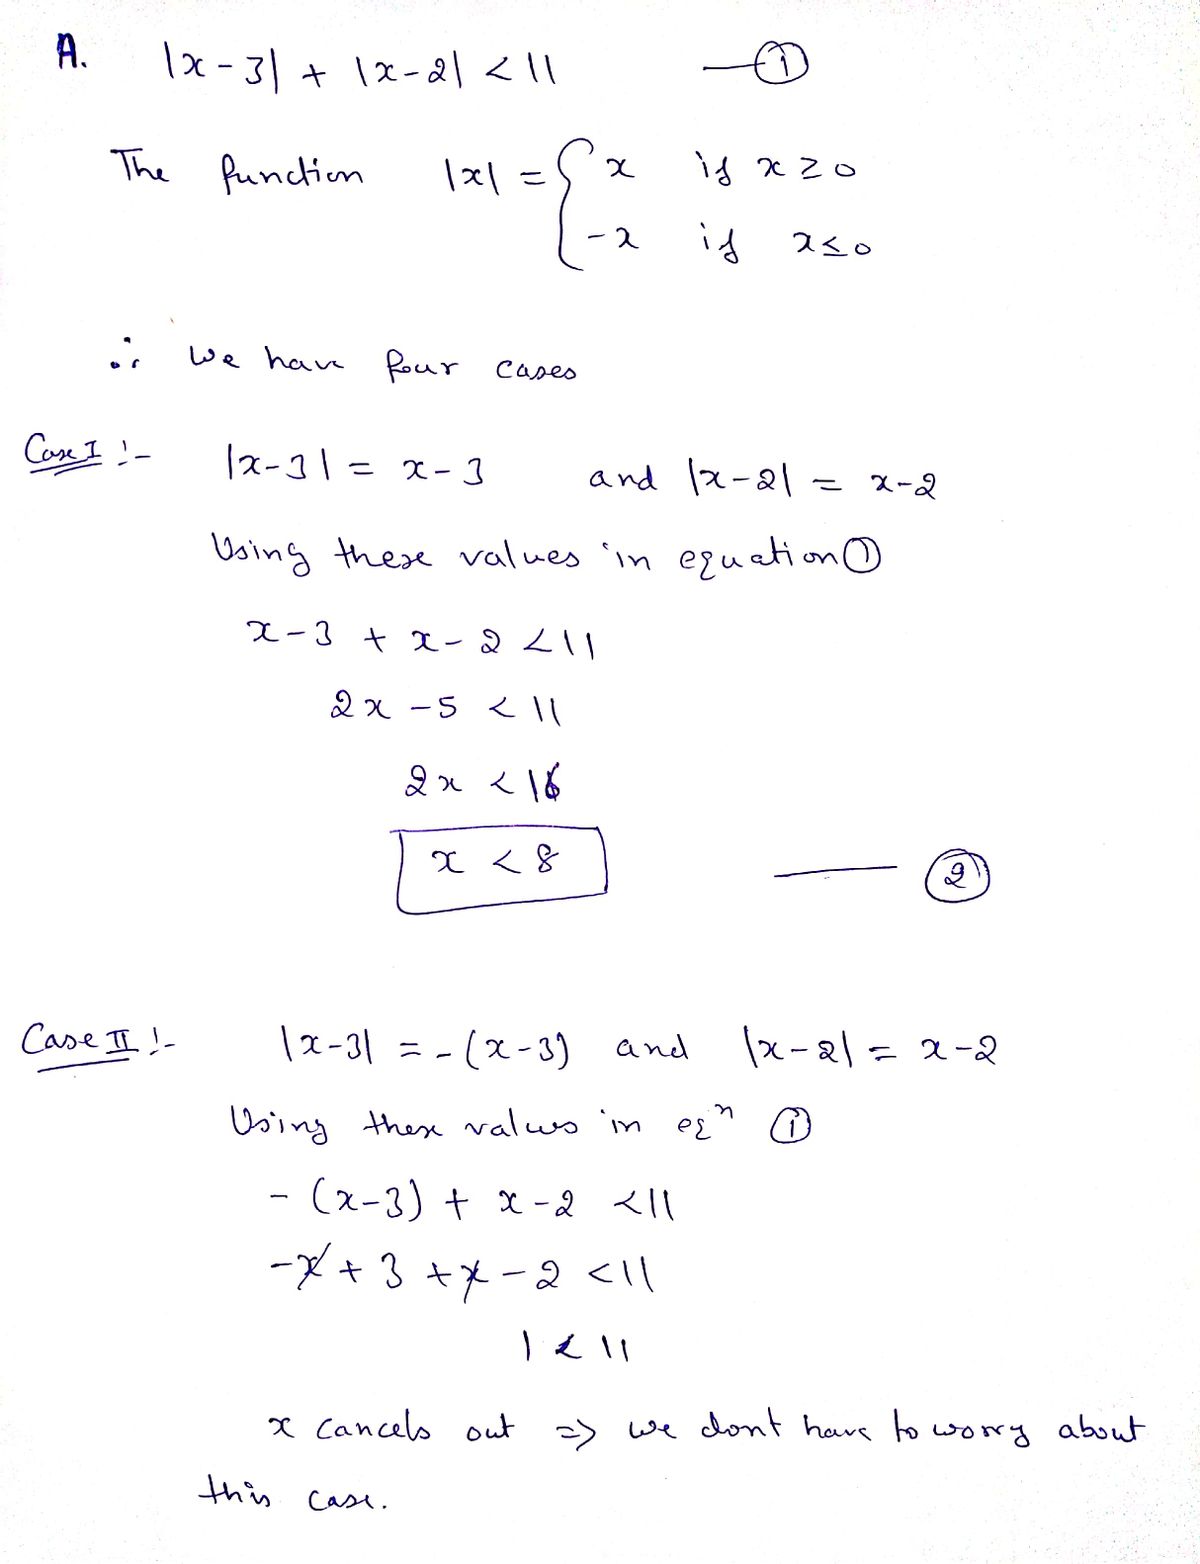 A. |x-3| + |x-2| < 11 — ①
The function |x| = { x if x ≥ 0
-x if x ≤ 0
∴ We have four cases
Case I :- |x-3| = x-3 and |x-2| = x-2
Using these values in equation ①
x-3 + x-2 < 11
2x - 5 < 11
2x < 16
x < 8 — ②
Case II :- |x-3| = -(x-3) and |x-2| = x-2
Using these values in eqⁿ ①
- (x-3) + x-2 < 11
-x + 3 + x - 2 < 11
1 < 11
x cancels out => we dont have to worry about
this case.